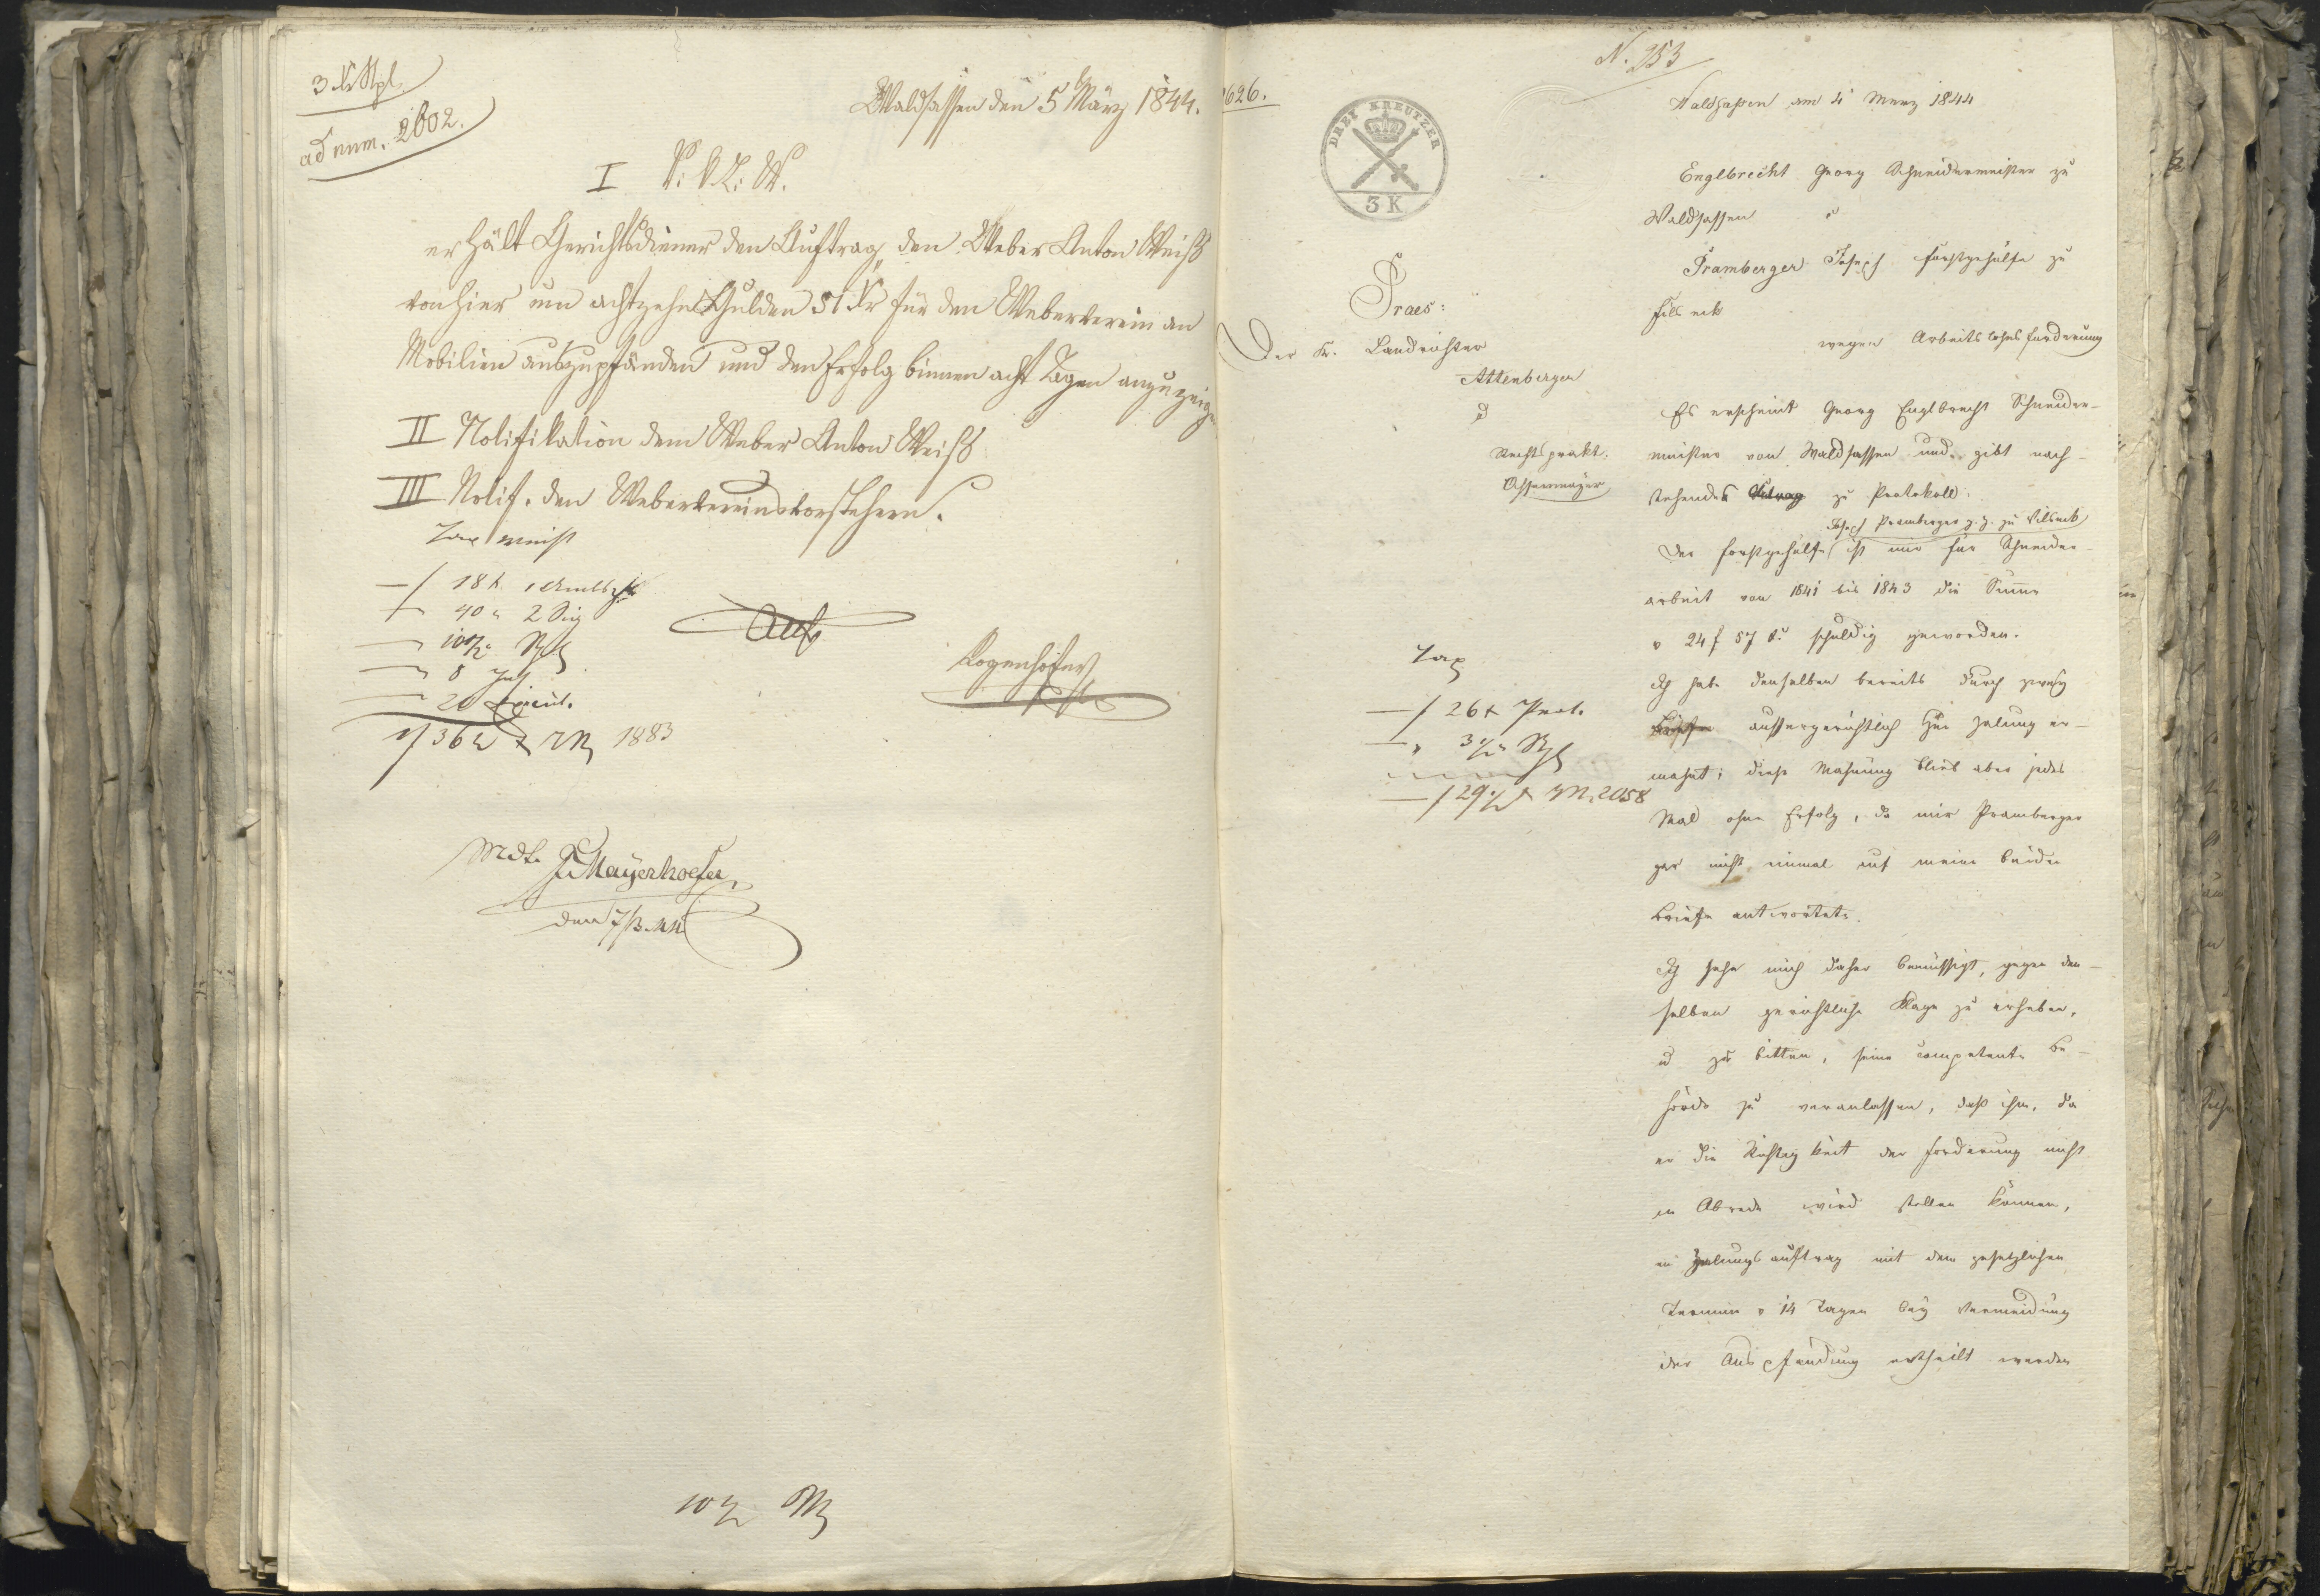 3 Kr Stpl.
ad num. 2602.
Waldsassen den 5 März 1844.
I V. K. L. W.
erhält Gerichtsdiener den Auftrag, den Weber Anton Weiß
von hier um achtzehn Gulden 51 Kr für den Weberverein an
Mobilien auszupfänden und den Erfolg binnen acht Tagen anzuzeigen
II Notifikation dem Weber Anton Weiß
III Notif. den Webervereinsvorstehern.
Tax
18 x
40 " 2 Sig
8
20
1883
Rogenhofer
Mdt. Mayerhoefer
den 7/3. 44
2626.
N. 253
DREI KREUTZER
3 K
Waldsaßen am 4 Merz 1844
Englbrecht Georg Schneidermeister zu
Waldsassen
Pramberger Joseph Forstgehülfe zu
Filseck
wegen Arbeitslohnsforderung
Praes:
Der K. Landrichter
Attenberger
d
Rechtsprakt.
Es erscheint Georg Englbrecht Schneider-
meister von Waldsassen und gibt nach-
stehendes zu Protokoll:
Joseph Pramberger z. Z. zu Vilseck
Der Forstgehülfe ist mir für Schneider-
arbeit von 1841 bis 1843 die Summe
v 24 f 57 kr schuldig geworden.
Ich habe denselben bereits durch zwey
Briefe aussergerichtlich zur Zalung er-
mahnt; diese Mahnung blieb aber jedes
Mal ohne Erfolg, da mir Pramberger
gar nicht einmal auf meine beiden
Briefe antwortete.
Tax
— f 26 x Prot.
3
— f 29 x 2058
Ich sehe mich daher bemüssigt, gegen den-
selben gerichtliche Klage zu erheben,
u zu bitten, seine competente Be-
hörde zu veranlassen, daß ihm, da
er die Richtigkeit der Forderung nicht
in Abrede wird stellen können,
ein Zalungsauftrag mit dem gesetzlichen
Termin v 14 Tagen bey Vermeidung
der Auspfändung ertheilt werden